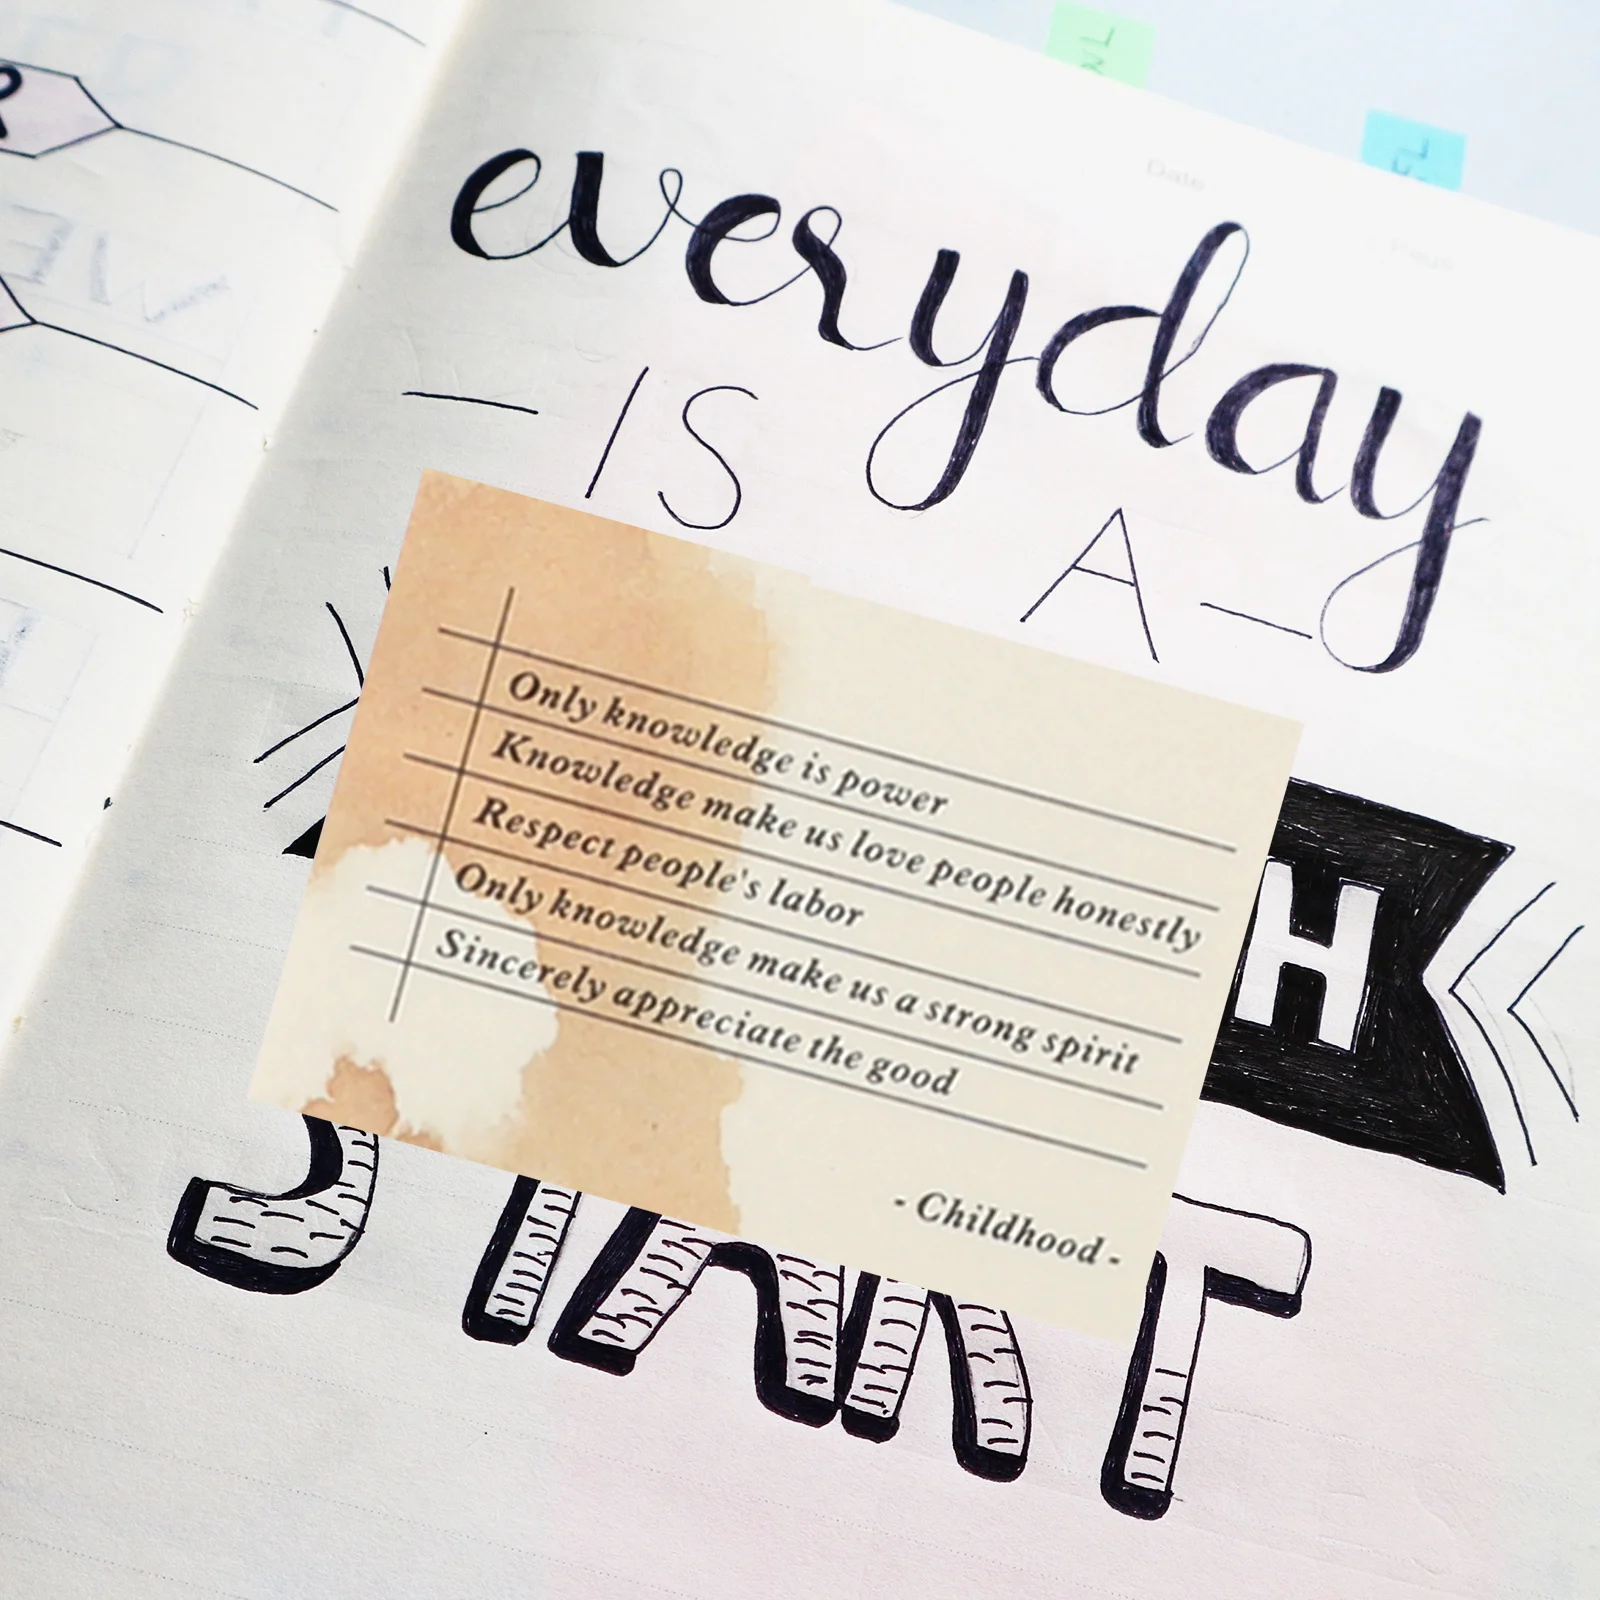 everyday
– IS A –
Only knowledge is power
Knowledge make us love people honestly
Respect people's labor
Only knowledge make us a strong spirit
Sincerely appreciate the good
- Childhood -
H
START
Date